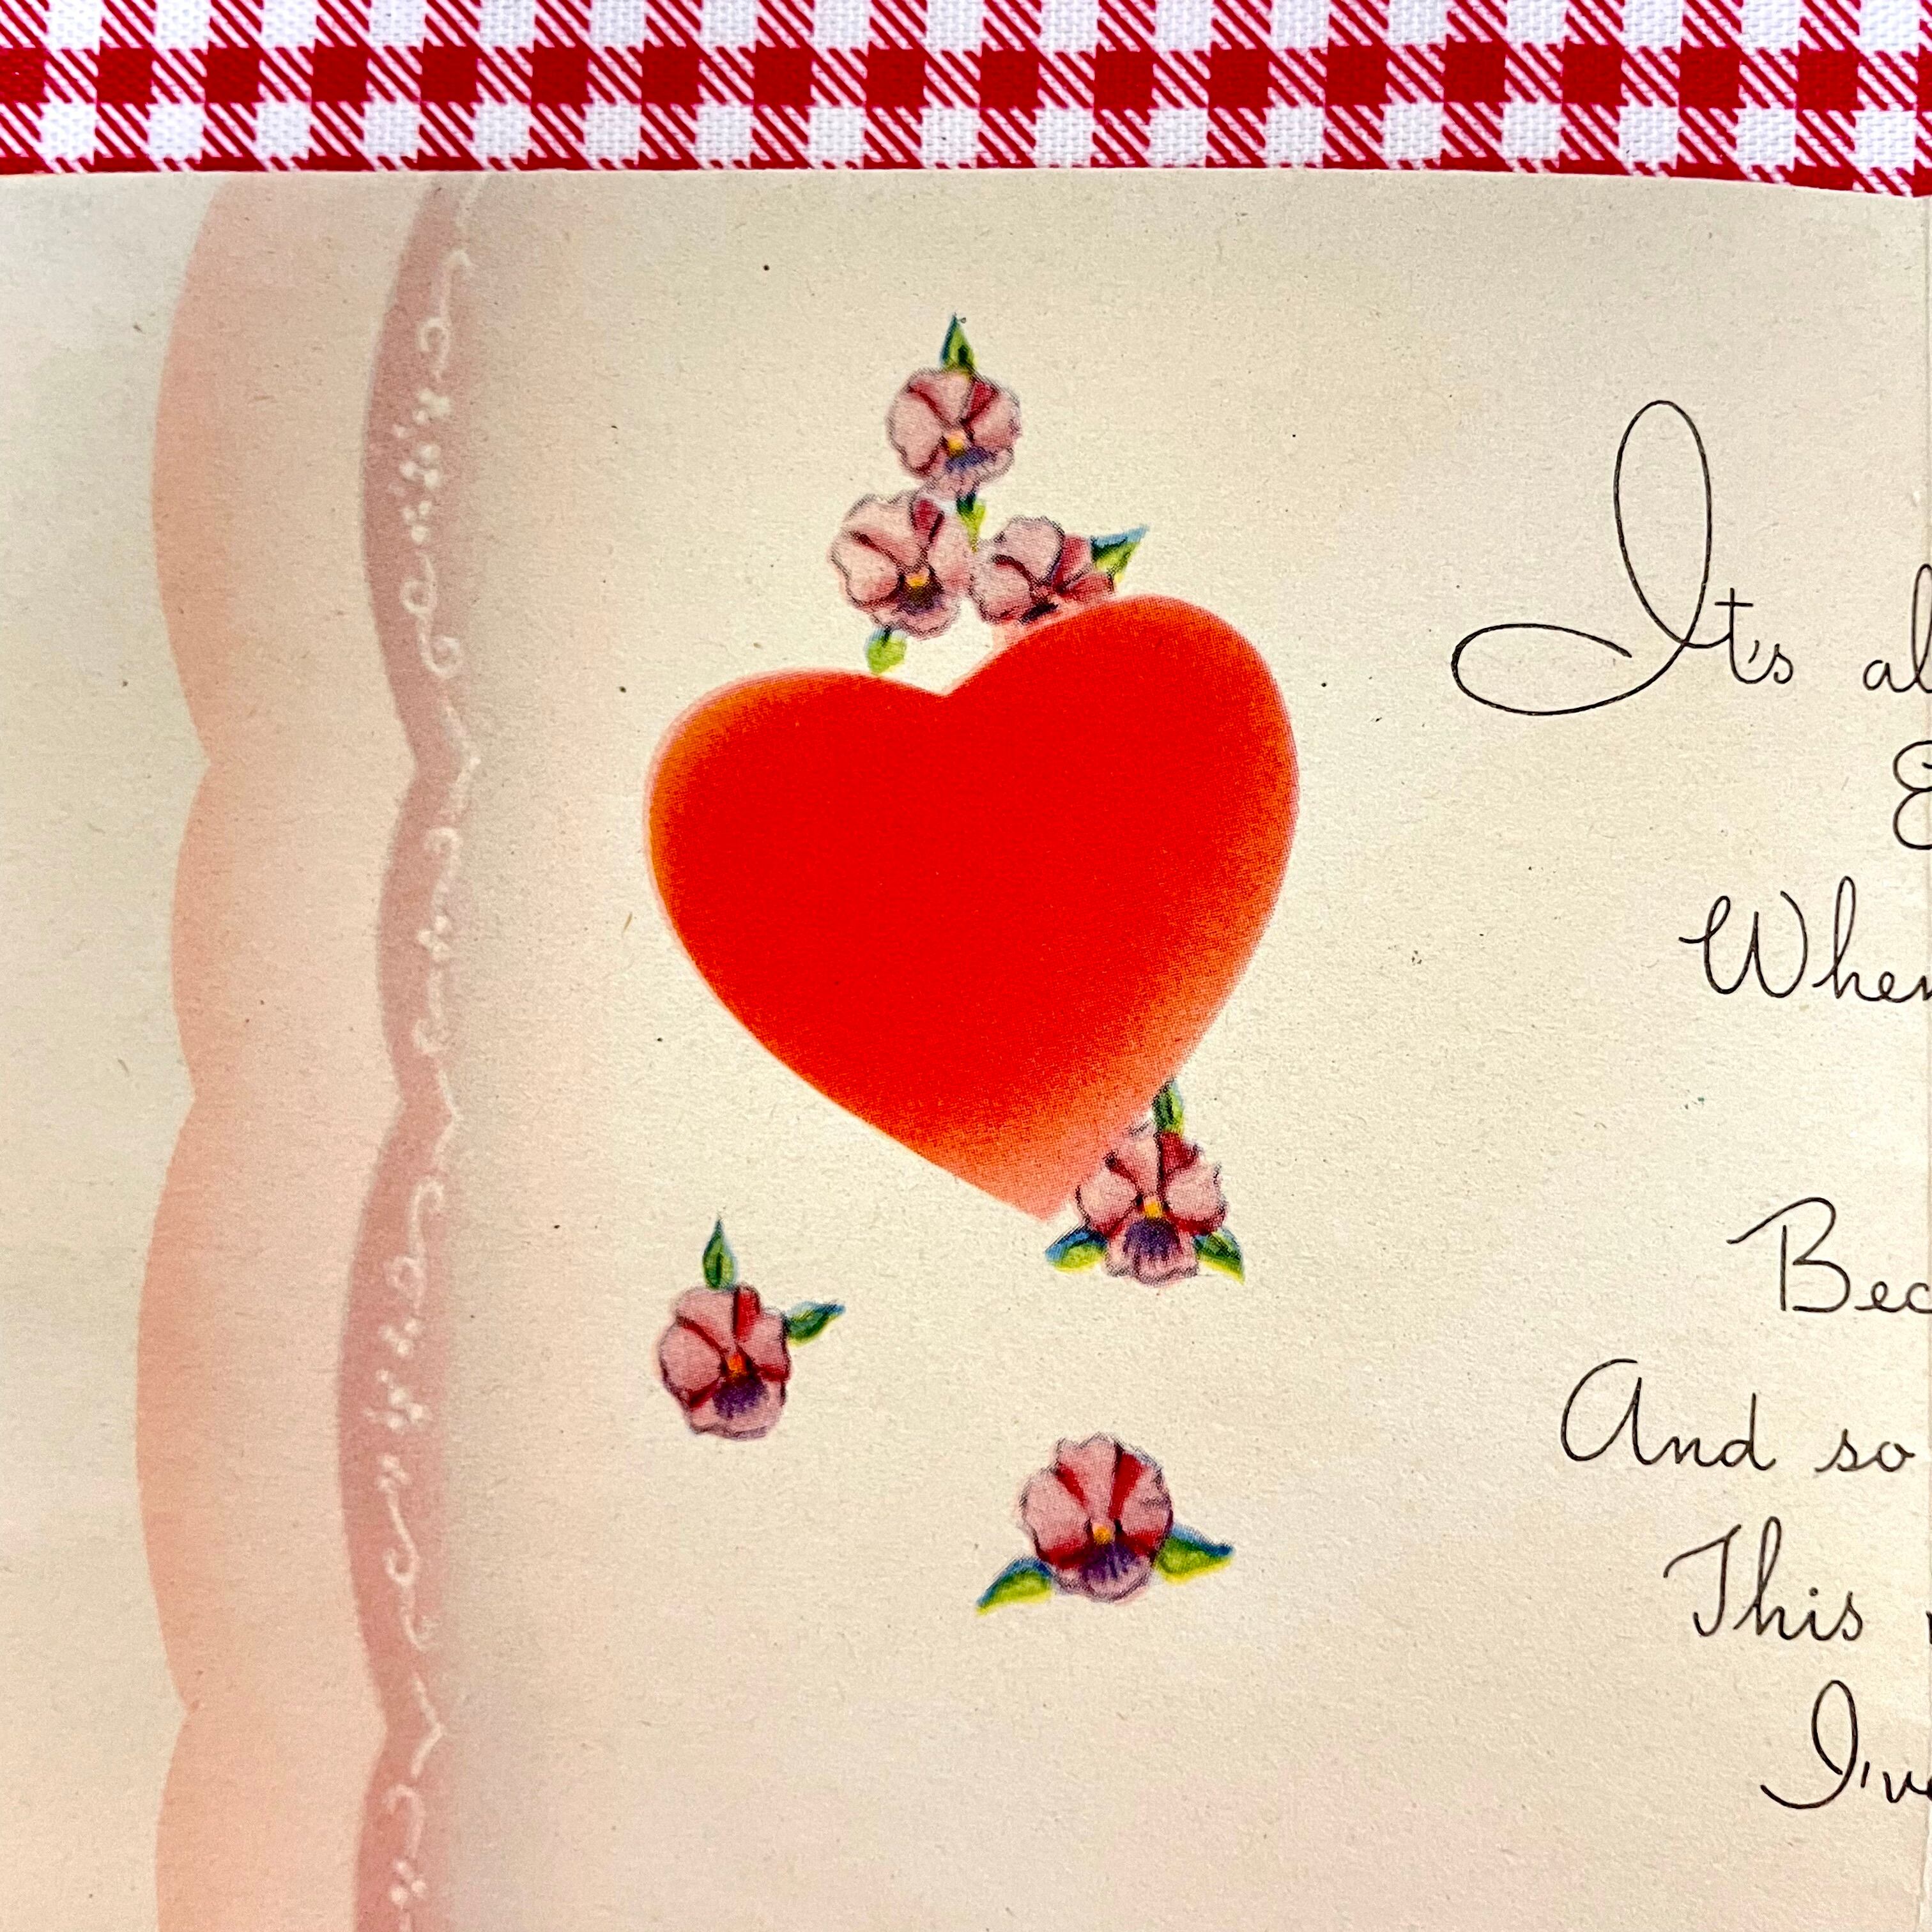 It's al
E
When
Bec
And so
This
I've